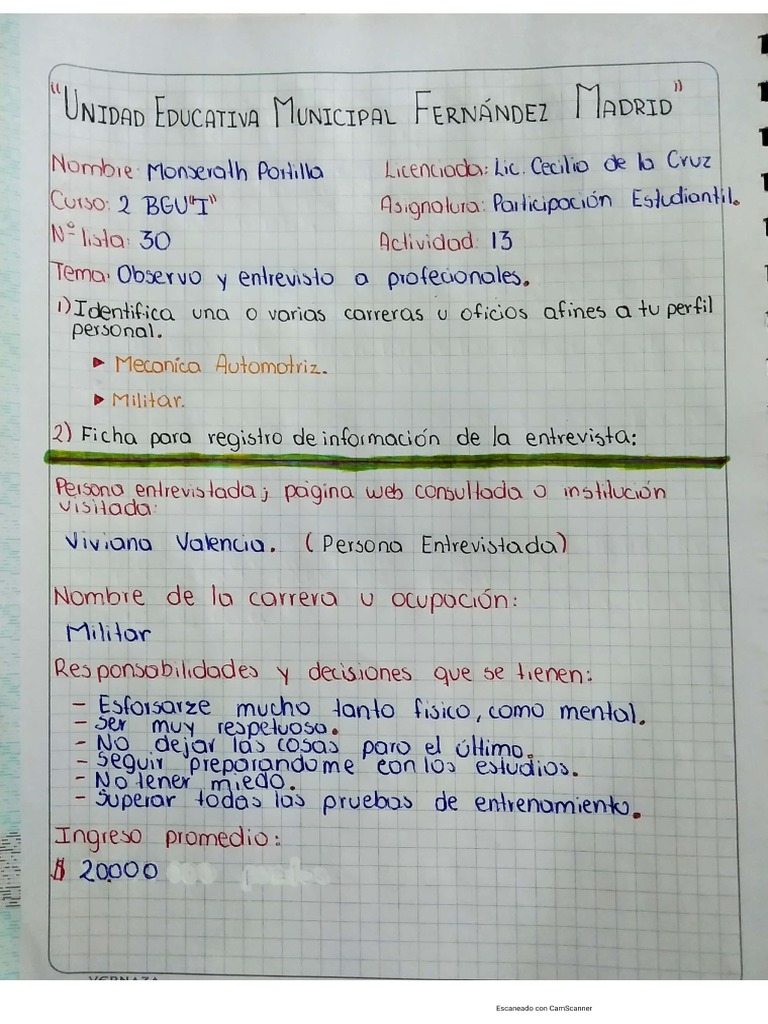 "UNIDAD EDUCATIVA MUNICIPAL FERNÁNDEZ MADRID"
Nombre: Monserath Portilla Licenciada: Lic. Cecilio de la Cruz
Curso: 2 BGU"I" Asignatura: Participación Estudiantil.
Nº lista: 30 Actividad: 13
Tema: Observo y entrevisto a profecionales.
1) Identifica una o varias carreras u oficios afines a tu perfil
personal.
▸ Meconíca Automotriz.
▸ Militar.
2) Ficha para registro de información de la entrevista:
Persona entrevistada; página web consultada o institución
visitada:
Viviana Valencia. (Persona Entrevistada)
Nombre de la carrera u ocupación:
Militar
Responsabilidades y decisiones que se tienen:
- Esforsarze mucho tanto fisico, como mental.
- Ser muy respetuosa.
- No dejar las cosas para el último.
- Seguir preparandome con los estudios.
- No tener miedo.
- Superar todas las pruebas de entrenamiento.
Ingreso promedio:
$ 20.000
Escaneado con CamScanner